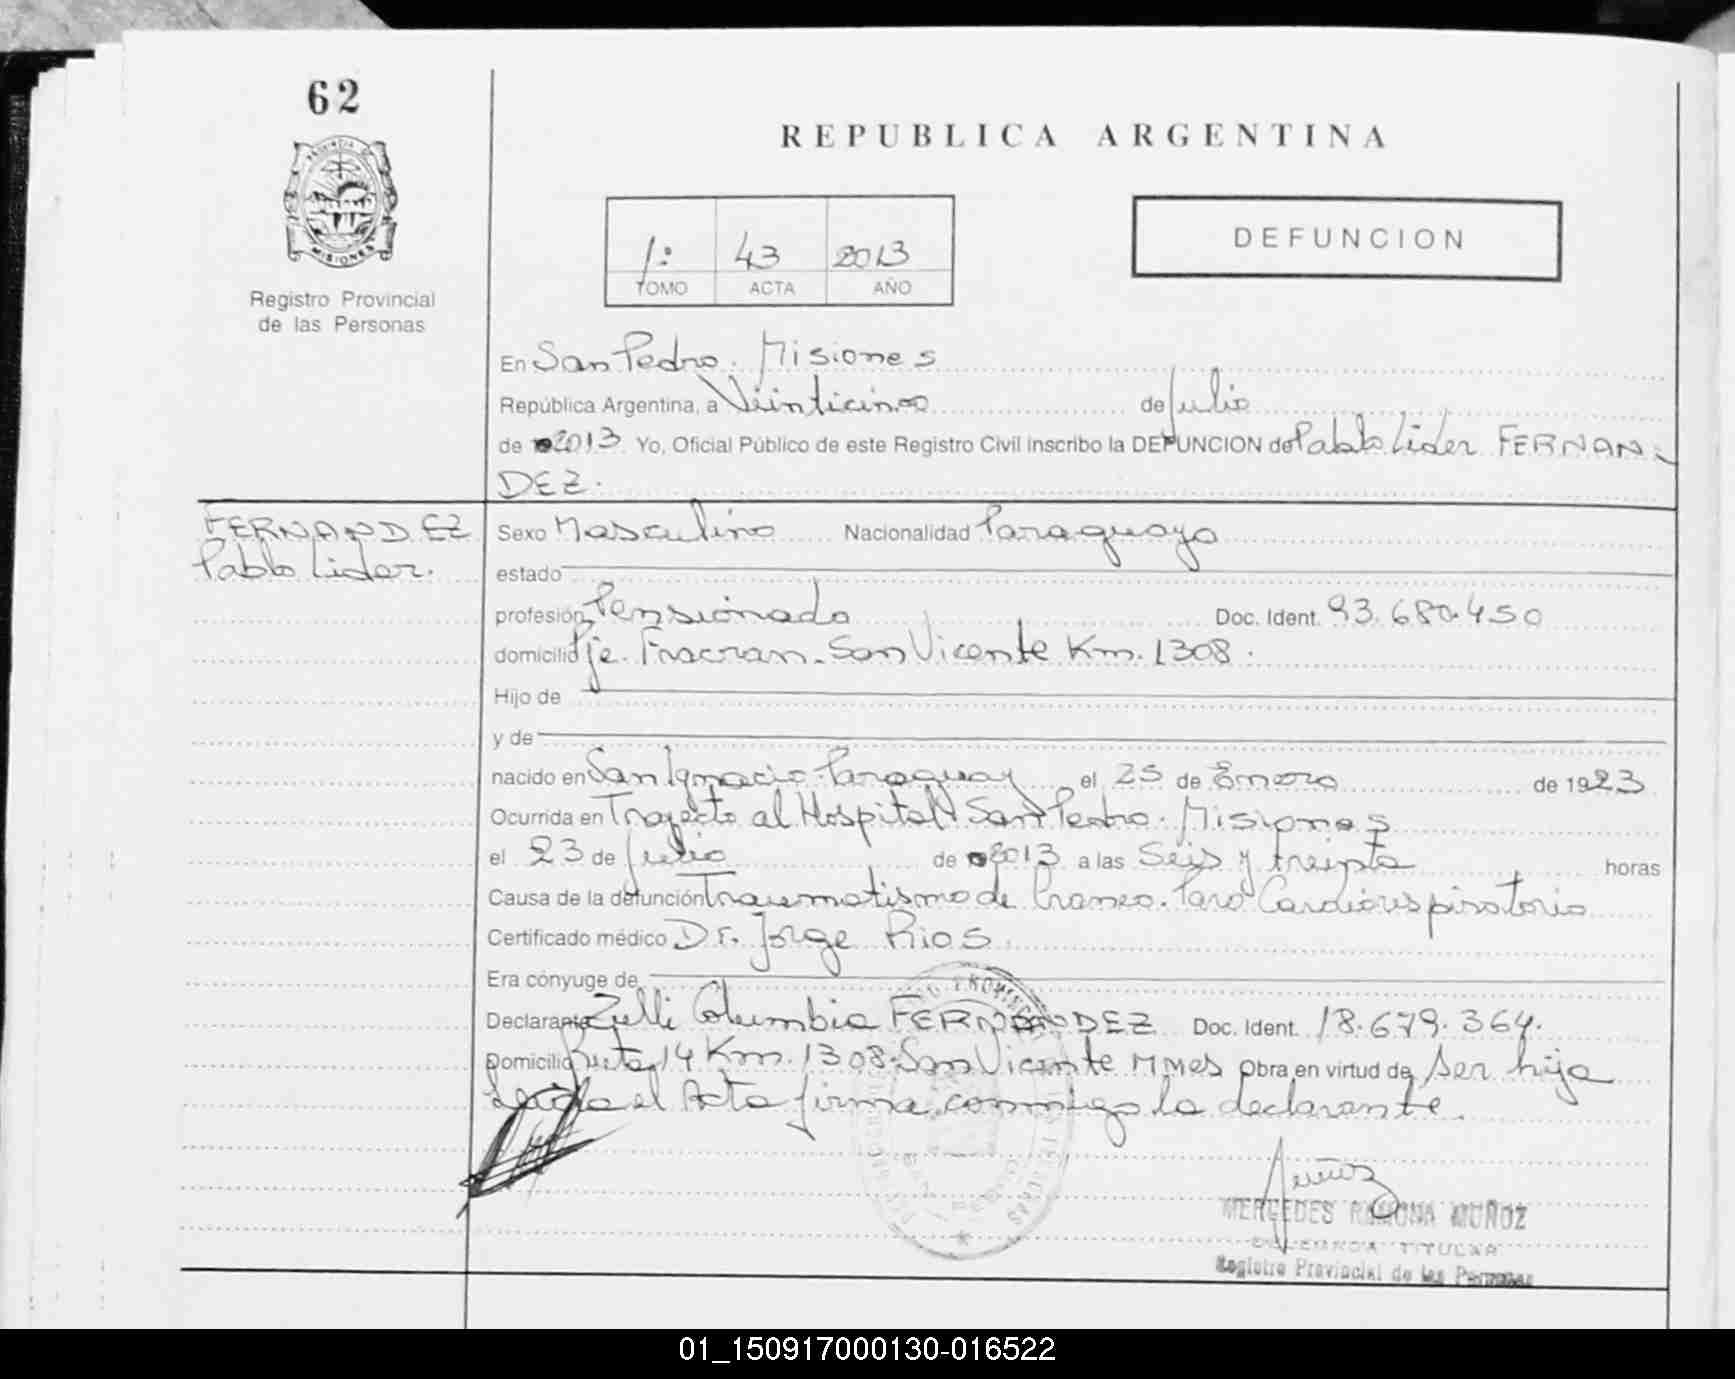 62
REPUBLICA ARGENTINA
PROVINCIA DE
MISIONES
Registro Provincial
de las Personas
1º 43 2013
TOMO ACTA AÑO
DEFUNCION
En San Pedro. Misiones
República Argentina, a Veinticinco de Julio
de 2013 Yo, Oficial Público de este Registro Civil inscribo la DEFUNCION de Pablo Lider FERNAN-
DEZ.
FERNANDEZ
Pablo Lider.
Sexo Masculino Nacionalidad Paraguayo
estado
profesión Pensionado Doc. Ident. 93.680.450
domicilio Pje. Fracran. San Vicente Km. 1308.
Hijo de
y de
nacido en San Ignacio. Paraguay el 25 de Enero de 1923
Ocurrida en Trayecto al Hospital San Pedro. Misiones
el 23 de Julio de 2013 a las Seis y treinta horas
Causa de la defunción Traumatismo de Craneo. Paro Cardiorespiratorio
Certificado médico Dr. Jorge Rios
Era cónyuge de
Declarante Zulli Columbia FERNANDEZ Doc. Ident. 18.679.364.
Domicilio Ruta 14 Km. 1308. San Vicente Mnes Obra en virtud de Ser hija
Leida el Acta firma conmigo la declarante.
MERCEDES RAMONA MUÑOZ
DELEGADA TITULAR
Registro Provincial de las Personas
01_150917000130-016522